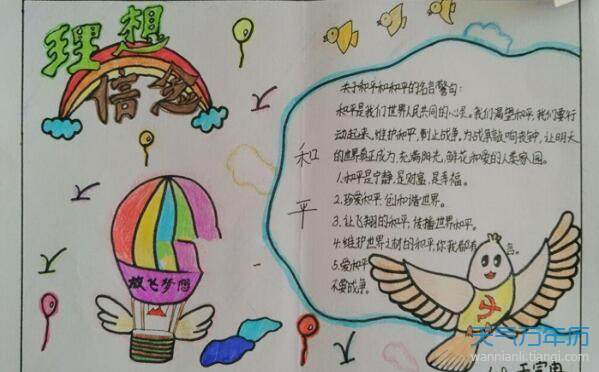 理想
信念
放飞梦想
和平
关于和平和和平的名言警句:
和平是我们世界人民共同的心灵。我们渴望和平,我们要行
动起来,维护和平,制止战争。为战争敲响丧钟,让明天
的世界真正成为充满阳光、鲜花和爱的人类家园。
1.和平是宁静,是财富,是幸福。
2.珍爱和平,创和谐世界。
3.让飞翔的和平,传播世界和平。
4.维护世界之林的和平,你我都有
5.爱和平
不要战争。
天气万年历
wannianli.tianqi.com